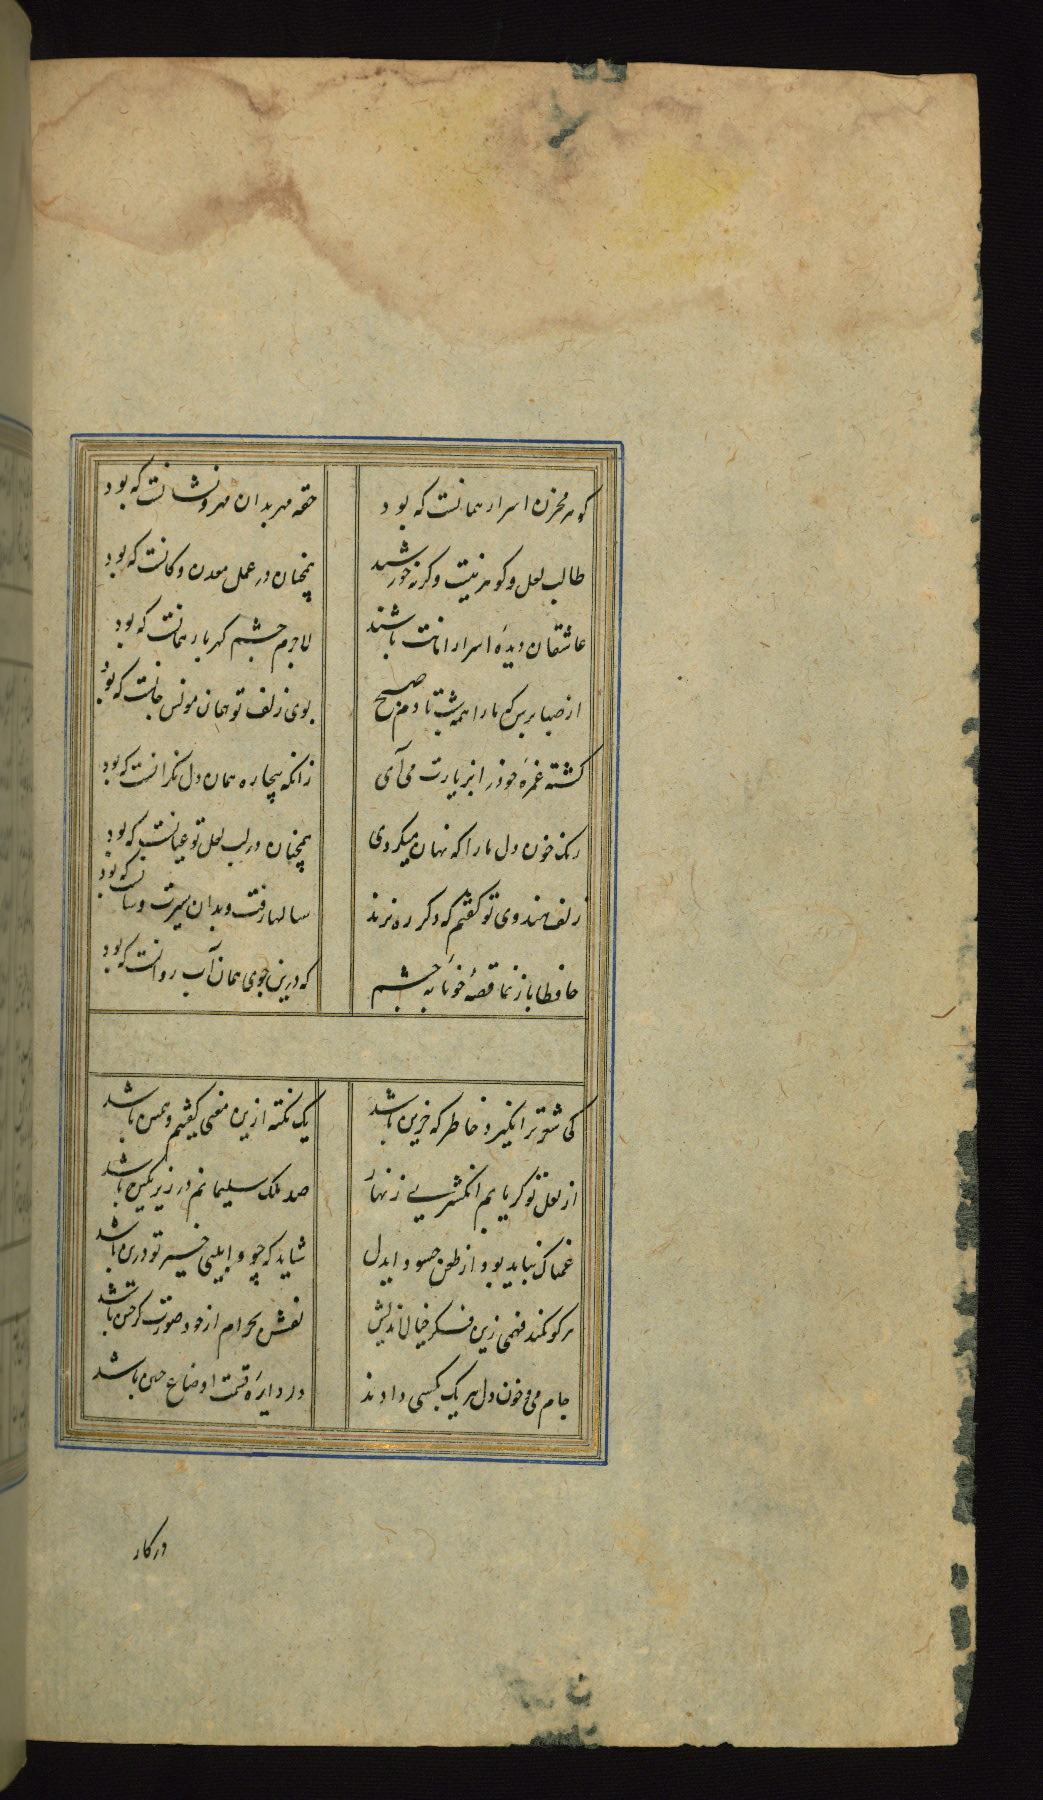 کوهر مخزن اسرار همانست که بود حقه مهر بدان مهر و نشانست که بود
طالب لعل و کوهر نیست وکرنه خورشید همچنان در عمل معدن و کانست که بود
عاشقان دیدۀ اسرار امانت باشند لاجرم چشم کهربار همانست که بود
از صبا پرس که ما را همه شب تا دم صبح بوی زلف تو همان مونس جانست که بود
کشته غمزۀ خود را بزیارت می آی زانکه بیچاره همان دل نکرانست که بود
رنک خون دل ما را که نهان میکردی همچنان در لب لعل تو عیانست که بود
زلف هندوی تو کفتم که دکر ره نزند سالها رفت و بدان سیرت و سانست که بود
حافظا باز نما قصۀ خونابۀ چشم که درین جوی همان آب روانست که بود
کی شعر تر انکیزد خاطر که حزین باشد یک نکته ازین معنی کفتیم و همین باشد
از لعل تو کر یابم انکشتری زنهار صد ملک سلیمانم در زیر نکین باشد
غمناک نباید بود از طعن حسود ای دل شاید که چو وابینی خیر تو درین باشد
هر کو نکند فهمی زین کلک خیال اندیش نقشش بحرام از خود صورتکر چین باشد
جام می و خون دل هر یک بکسی دادند در دایرۀ قسمت اوضاع چنین باشد
در کار